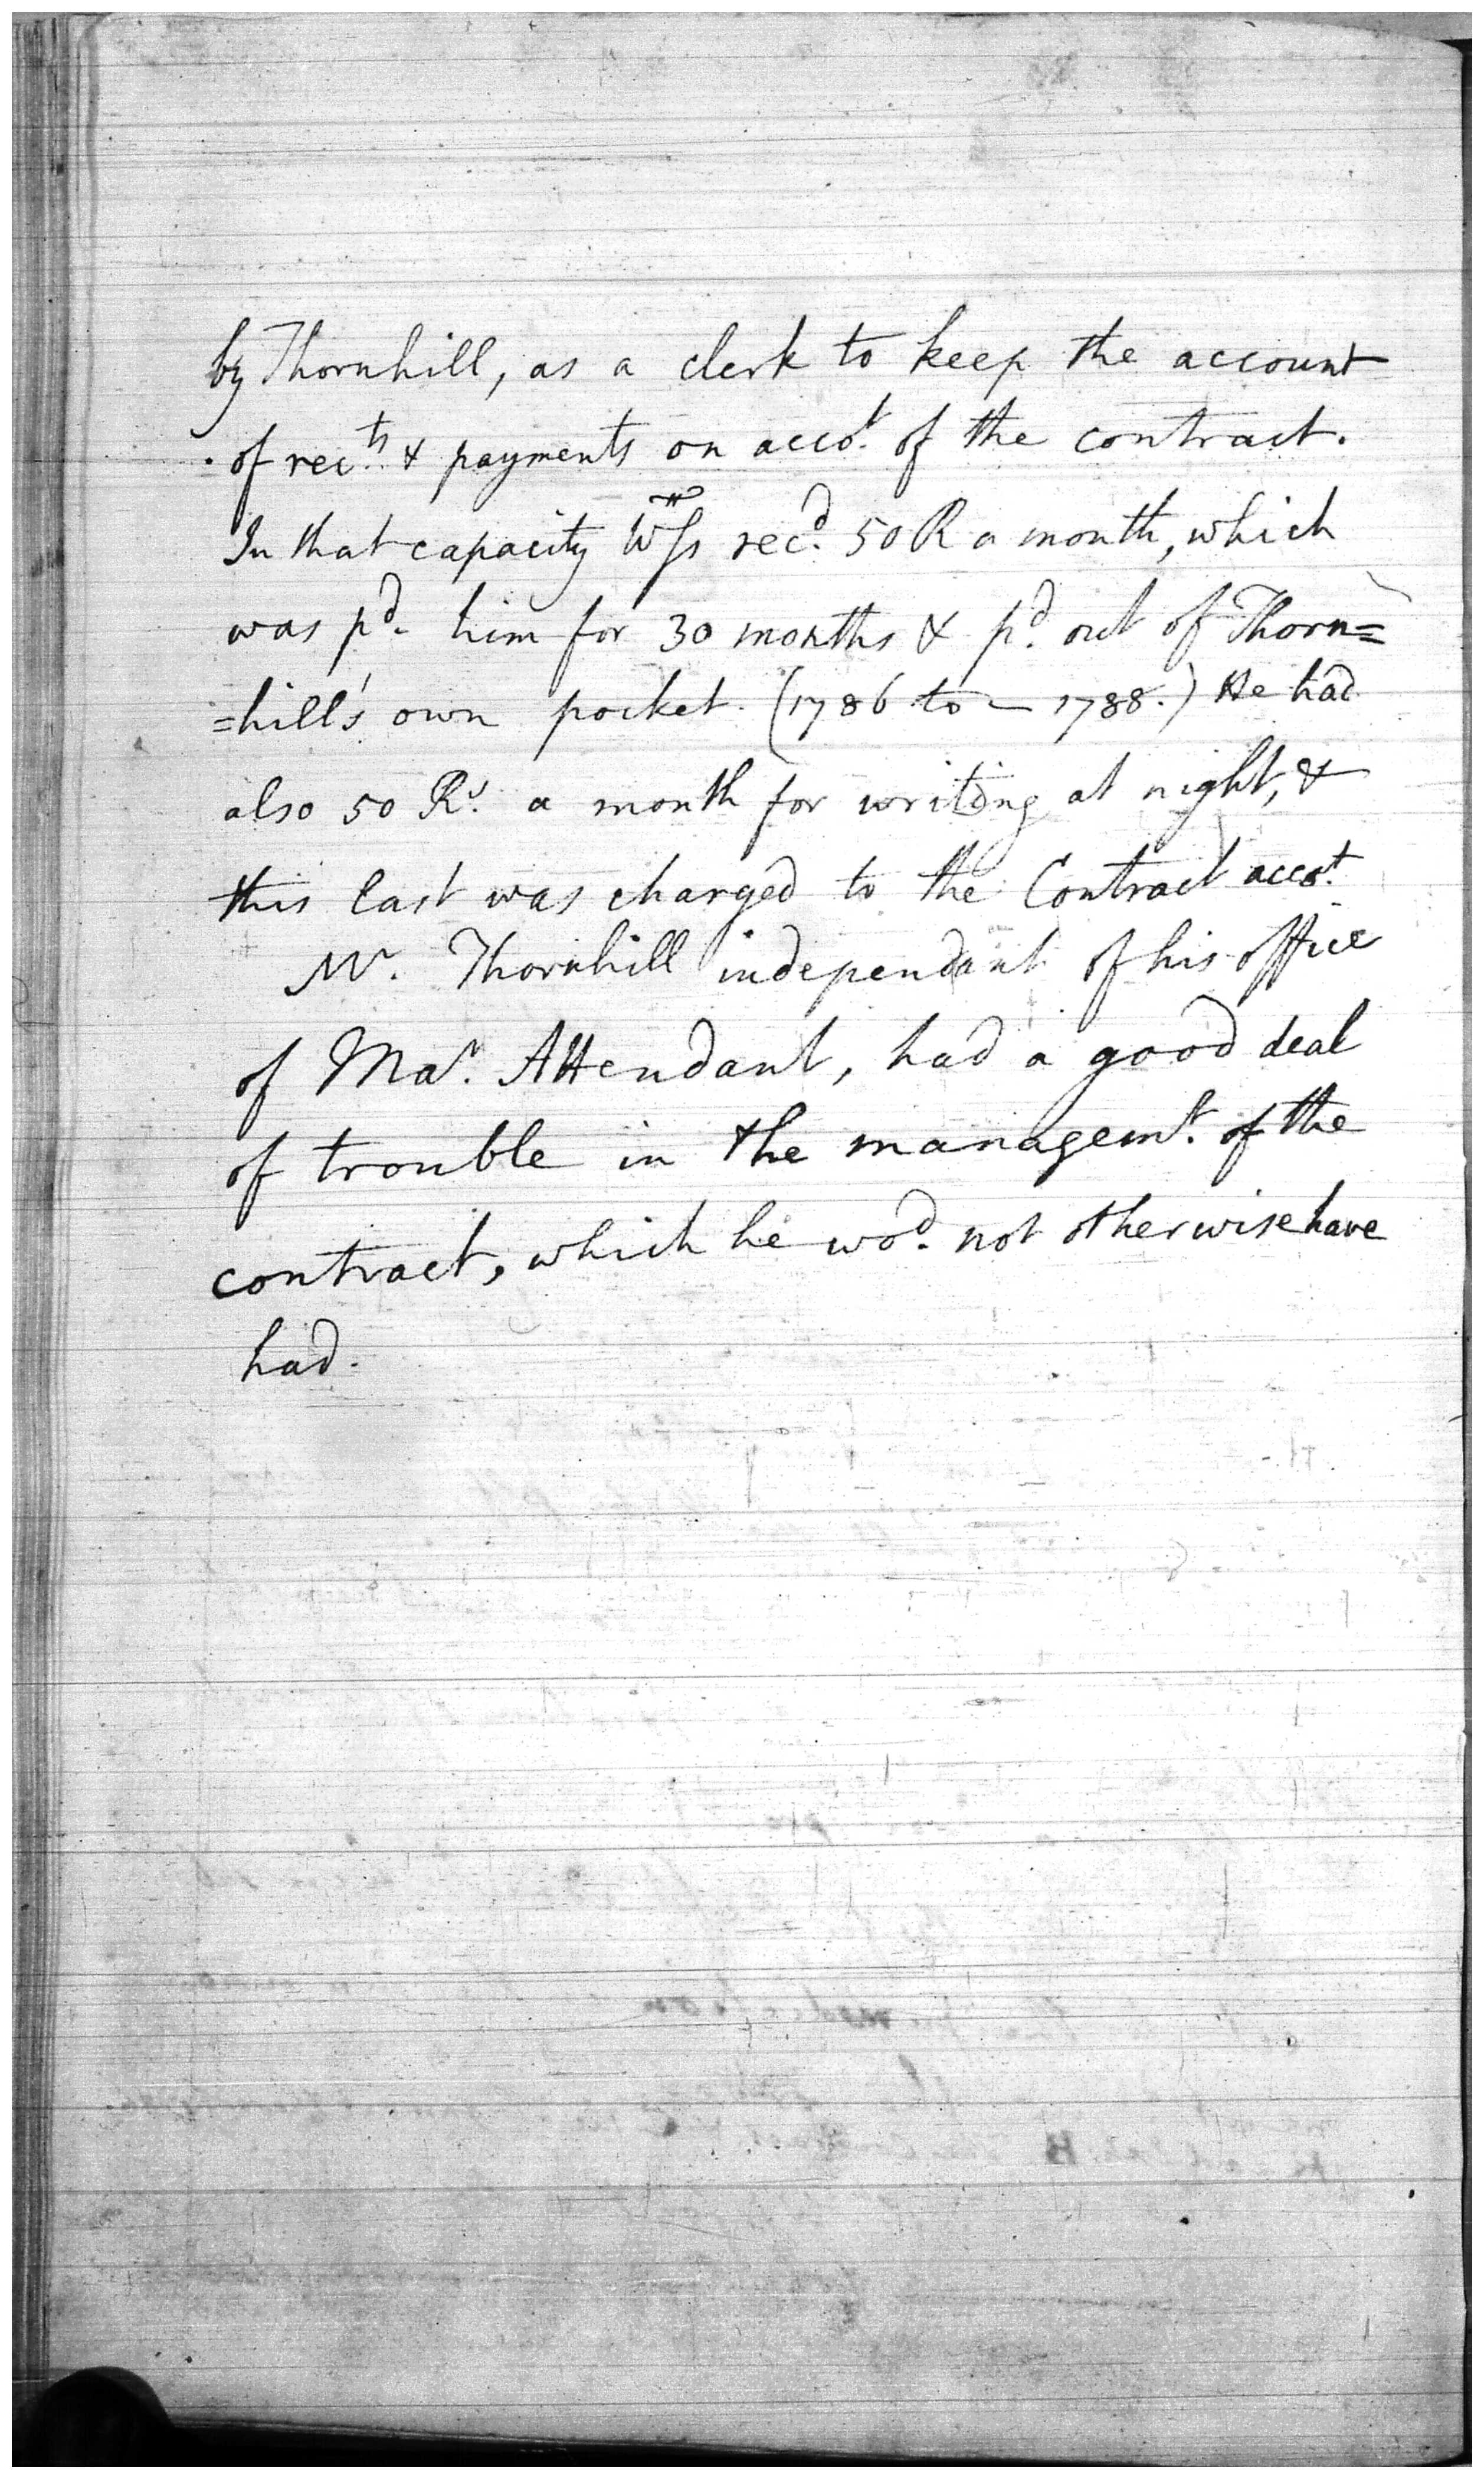 by Thornhill, as a clerk to keep the account
of rec.ts & payments on acco.t of the contract.
In that capacity Wss rec.d 50 R a month, which
was p.d him for 30 months & p.d out of Thorn=
=hill's own pocket. (1786 to — 1788.) He had
also 50 R.s a month for writing at night, &
this last was charged to the Contract acco.t
M.r Thornhill independant of his office
of Ma.r Attendant, had a good deal
of trouble in the managem.t of the
contract, which he wo.d not otherwise have
had.